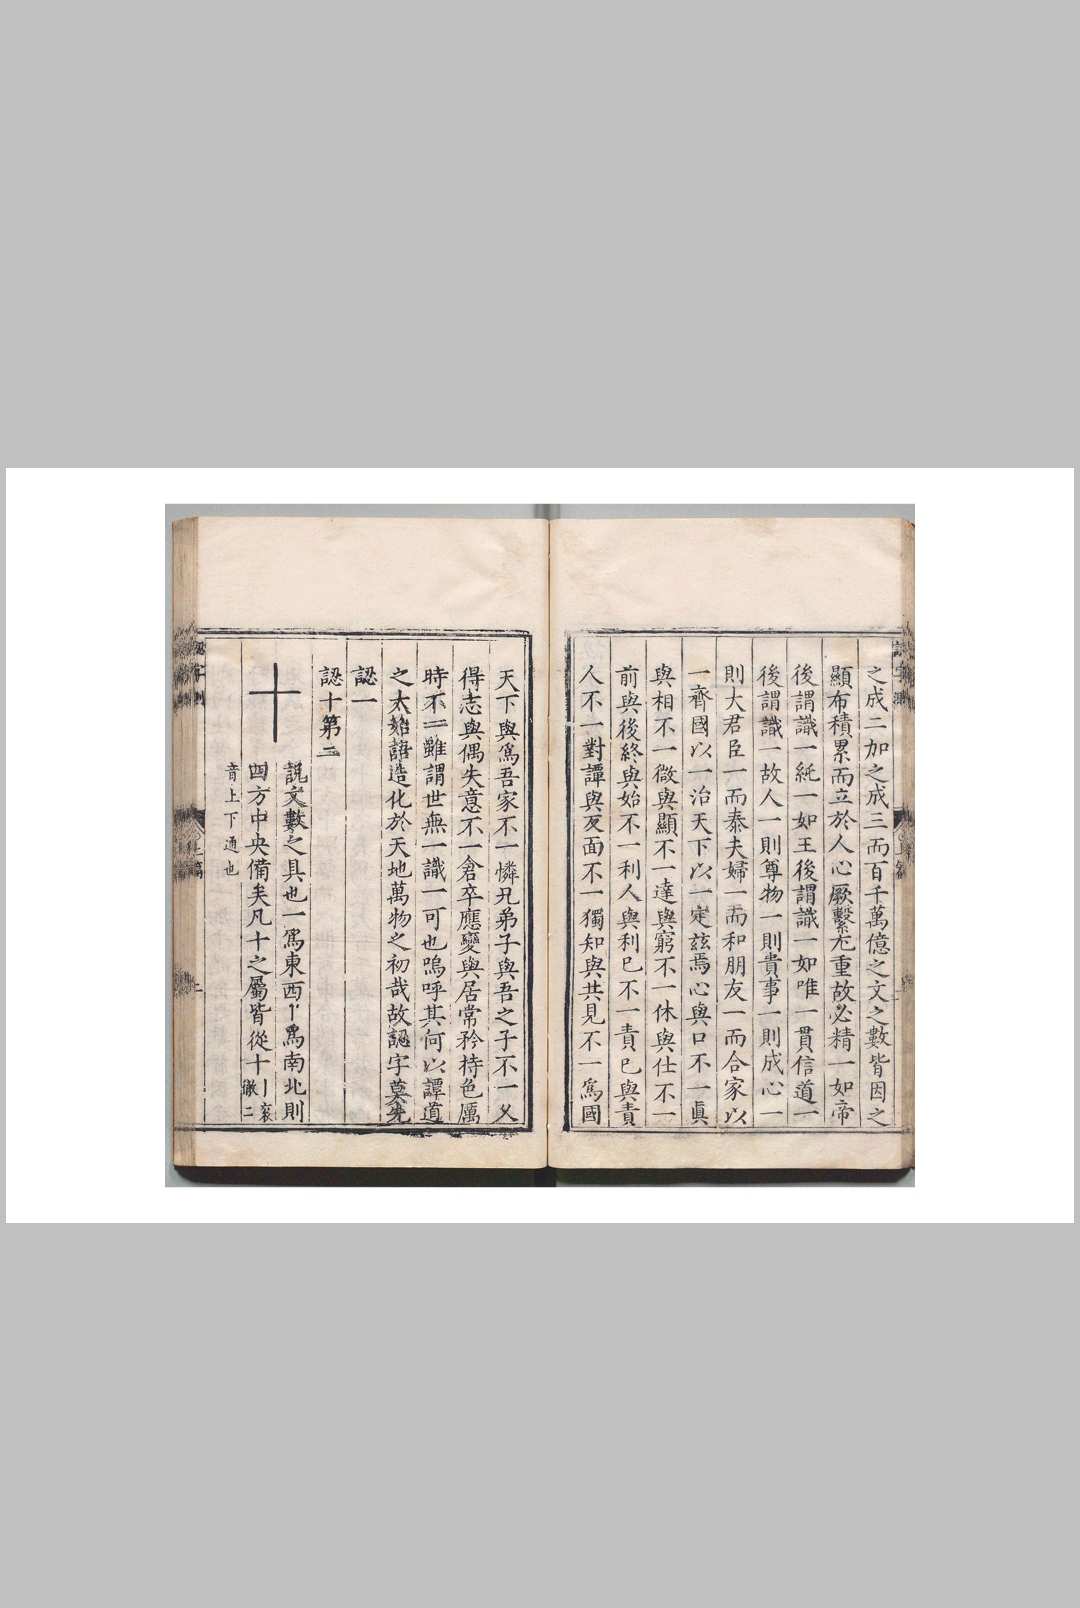 之成二加之成三而百千萬億之文之數皆因之
顯布積累而立於人心厥繫尤重故必精一如帝
後謂識一純一如王後謂識一如唯一貫信道一
後謂識一故人一則尊物一則貴事一則成心一
則大君臣一而泰夫婦一而和朋友一而合家以
一齊國以一治天下以一定兹焉心與口不一眞
與相不一微與顯不一達與窮不一休與仕不一
前與後終與始不一利人與利已不一責已與責
人不一對譚與反面不一獨知與共見不一爲國
天下與爲吾家不一憐兄弟子與吾之子不一乂
得志與偶失意不一倉卒應變與居常矜持色厲
時不一雖謂世無一識一可也嗚呼其何以譚道
之太始語造化於天地萬物之初哉故認字莫先
認一
認十第二
十
說文數之具也一爲東西丨爲南北則
四方中央備矣凡十之屬皆從十丨衮徹二
音上下通也
認字測
上篇